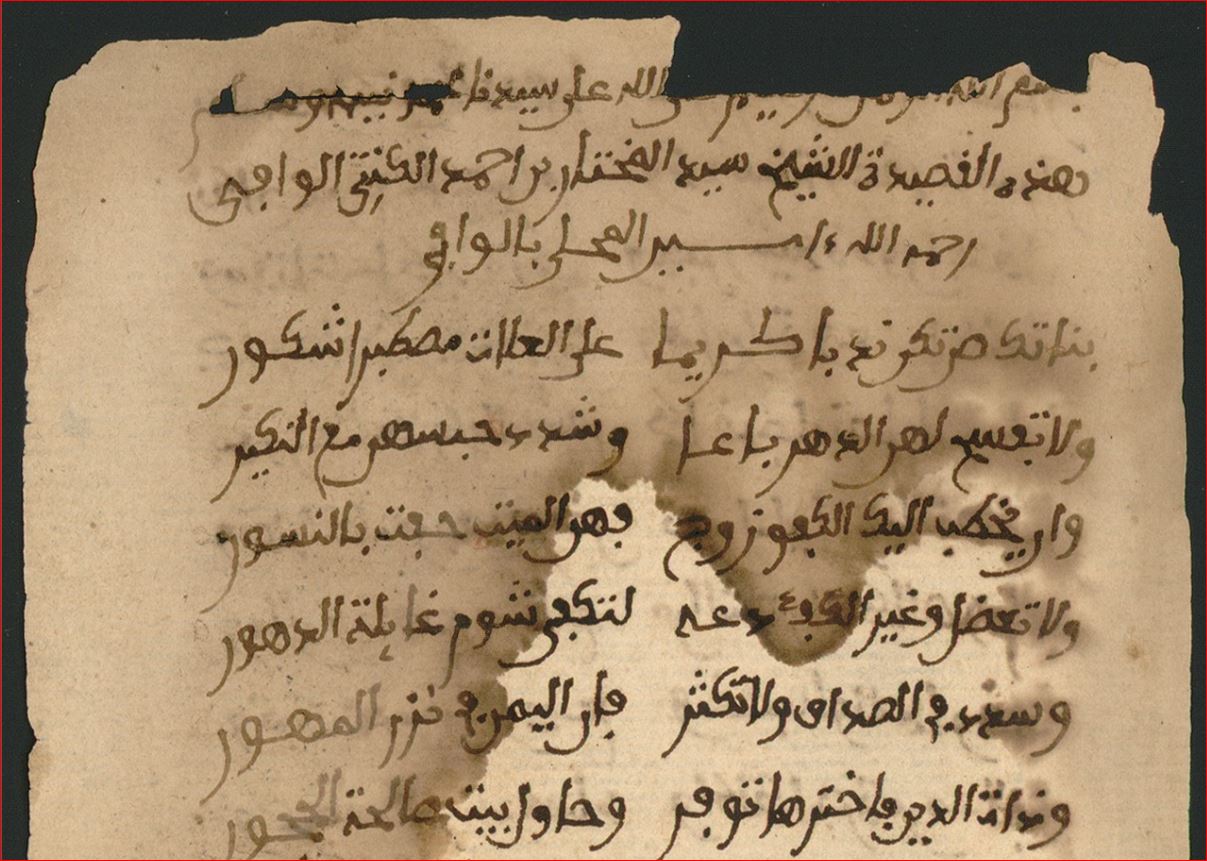 بسم الله الرحمن الرحيم صلى الله على سيدنا محمد نبيه وسلم
هذه القصيدة الشيخ سيد المختار بن احمد الكنتي الوافي
رحمه الله ءامـــين المحلى بالوافي
بناتك صن تكن ند يا كريما على العلات مصطبرا شكور
ولا تفسح لهن الدهر باعا وشدد حبسهن مع النكير
وان يخطب اليك الكفو زوج فهن الميت حفت بالنسور
ولا تعضل وغير الكفؤ دعه لتكفى شوم غايلة الدهور
وسدد في الصداق ولا تكثر فان اليمن في نزر المهور
وذات الدين فاخترها توفر وحاول بيت صالحة الحجور